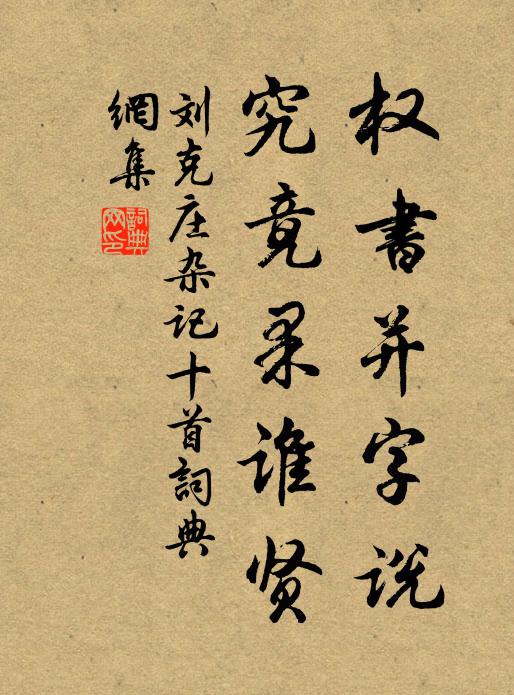 权书并字说
究竟果谁贤
刘克庄杂记十首詞典
網集
詞典
网印